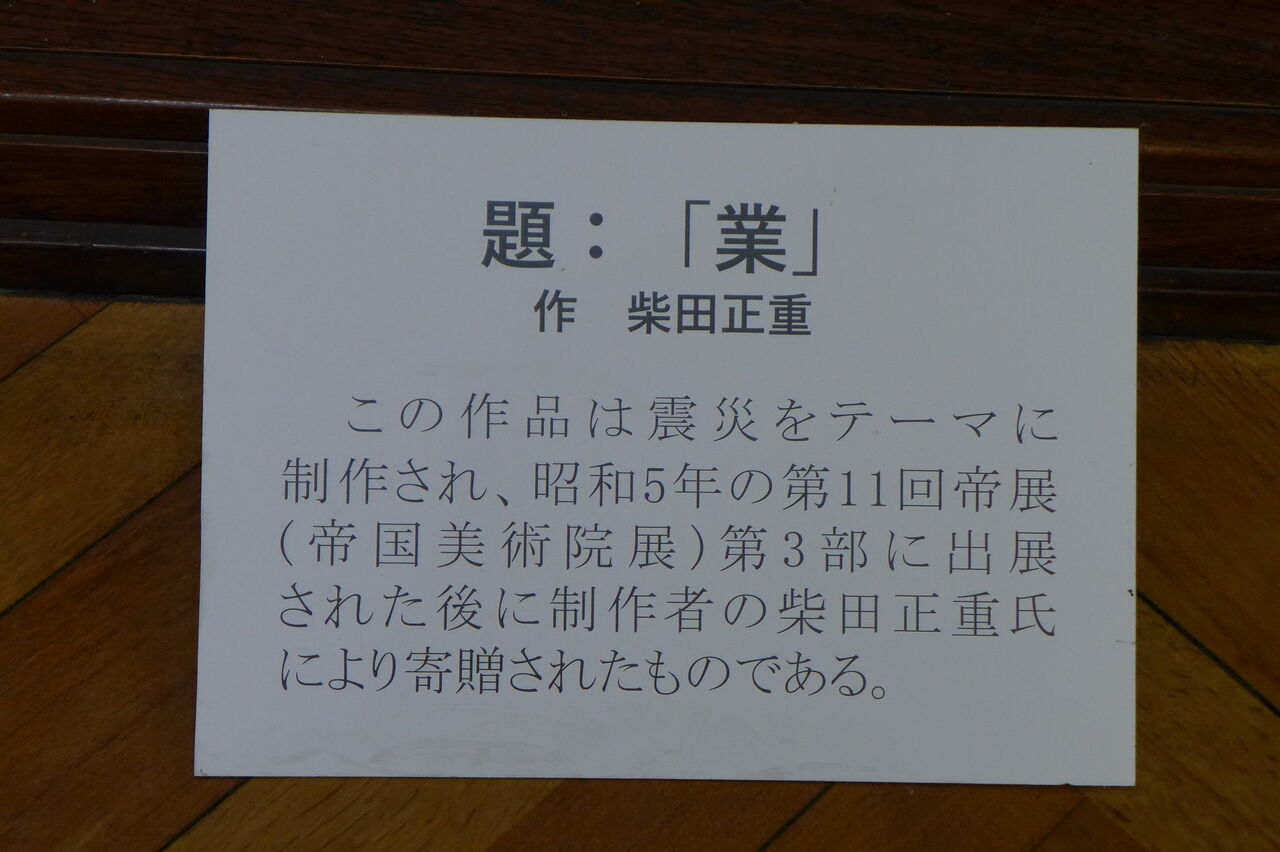 題：「業」
作　柴田正重
この作品は震災をテーマに
制作され、昭和5年の第11回帝展
(帝国美術院展)第3部に出展
された後に制作者の柴田正重氏
により寄贈されたものである。